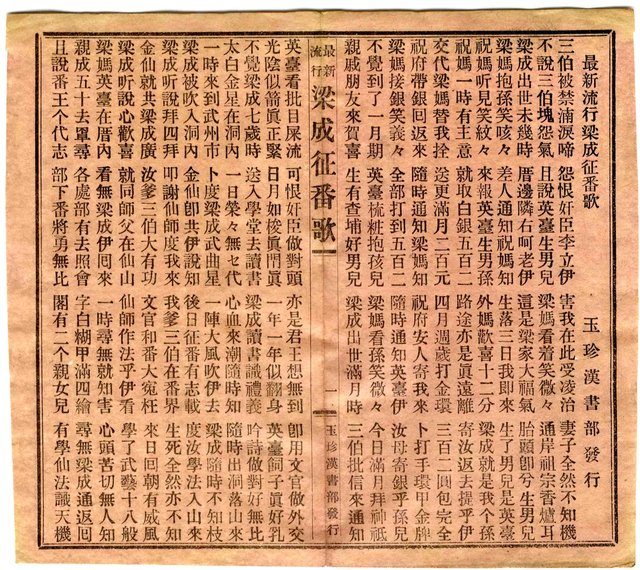 最新流行梁成征番歌　玉珍漢書部發行
三伯被禁湳淚啼　怨恨奸臣李立伊　害我在此受凌治　妻子全然不知機
不說三伯塊怨氣　且說英臺生男兒　梁媽看着笑微々　通岸祖宗香爐耳
梁成出世未幾時　厝邊隣右呵老伊　這是梁家大福氣　胎頭卽兮生男兒
梁媽抱孫笑咳々　差人通知祝媽知　生落三日我即來　生了男兒是英臺
祝媽听見笑紋々　來報英臺生男孫　外媽歡喜十二分　梁成就是我个孫
祝媽一時有主意　就取白銀五百二　路途亦是眞遠離　寄汝返去提乎伊
交代梁媽替我拴　送更滿月二百元　四月週歲打金環　三百二圓包完全
祝府帶銀回返來　隨時通知梁媽知　祝府安人寄我來　卜打手環甲金牌
梁媽接銀笑義々　全部打到五百二　隨時通知英臺伊　汝母寄銀乎孫兒
不覺到了一月期　英臺梳粧抱孩兒　梁媽看孫笑微々　今日滿月拜神祇
親戚朋友來賀喜　生有查埔好男兒　梁成出世滿月時　三伯批信來通知
最新流行　梁成征番歌　一　玉珍漢書部發行
英臺看批目屎流　可恨奸臣做對頭　亦是君王想無到　卽用文官做外交
光陰似箭眞正緊　日月如梭眞閂眞　一年一年似翻身　英臺飼子眞好乳
不覺梁成七歲時　送入學堂去讀書　梁成讀書識禮義　吟詩做對好無比
太白金星在洞內　一日榮々無七代　心血來潮隨時知　隨時出洞落山來
一時來到武州市　卜度梁成武曲星　一陣大風吹伊去　梁成隨時不知枝
梁成被吹入洞內　金仙卽共伊說知　後日征番有志載　度汝學法入山來
梁成听說拜四拜　叩謝仙師度我來　我爹三伯在番界　生死全然亦不知
金仙就共梁成廣　汝爹三伯大有功　文官和番大寃枉　來日回朝有威風
梁成听說心歡喜　就同師父在仙山　仙師作法乎伊看　學了武藝十八般
梁媽英臺在厝內　看無梁成伊囘來　一時尋無就知害　心頭苦切無人知
親成五十去單尋　各處部有去照會　字白糊甲滿四繪　尋無梁成通返囘
且說番王个代志　部下番將勇無比　閣有二个親女兒　有學仙法識天機